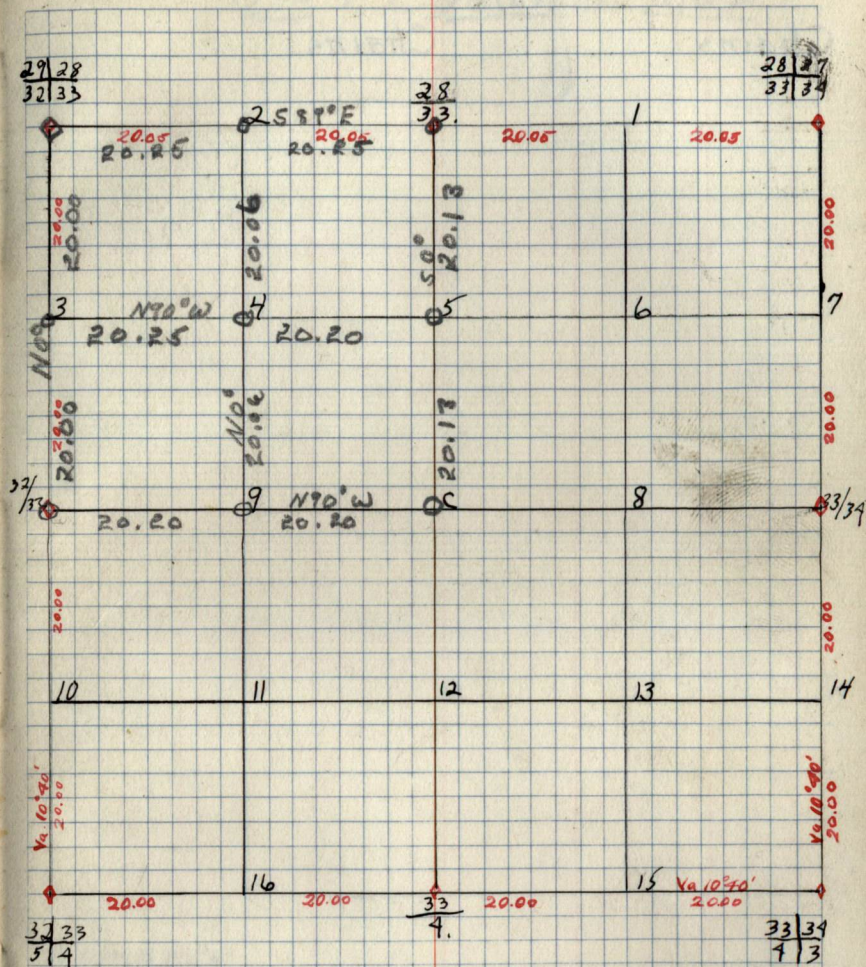 29|28
32|33
28
33.
28|27
33|34
2 S 89° E
1
20.05 20.05 20.05 20.05
20.25 20.25
20.00
20.00
20.06
S0°
20.13
20.00
3 N90°W 4 5 6 7
20.25 20.20
N0°
20.00
20.00
N0°
20.06
20.13
20.00
32/33 9 N90°W C 8 33/34
20.20 20.20
20.00
20.00
10 11 12 13 14
Va 10°40'
20.00
Va 10°40'
20.00
16 15 Va 10°40'
20.00 20.00 20.00 20.00
32|33
5|4
33
4.
33|34
4|3